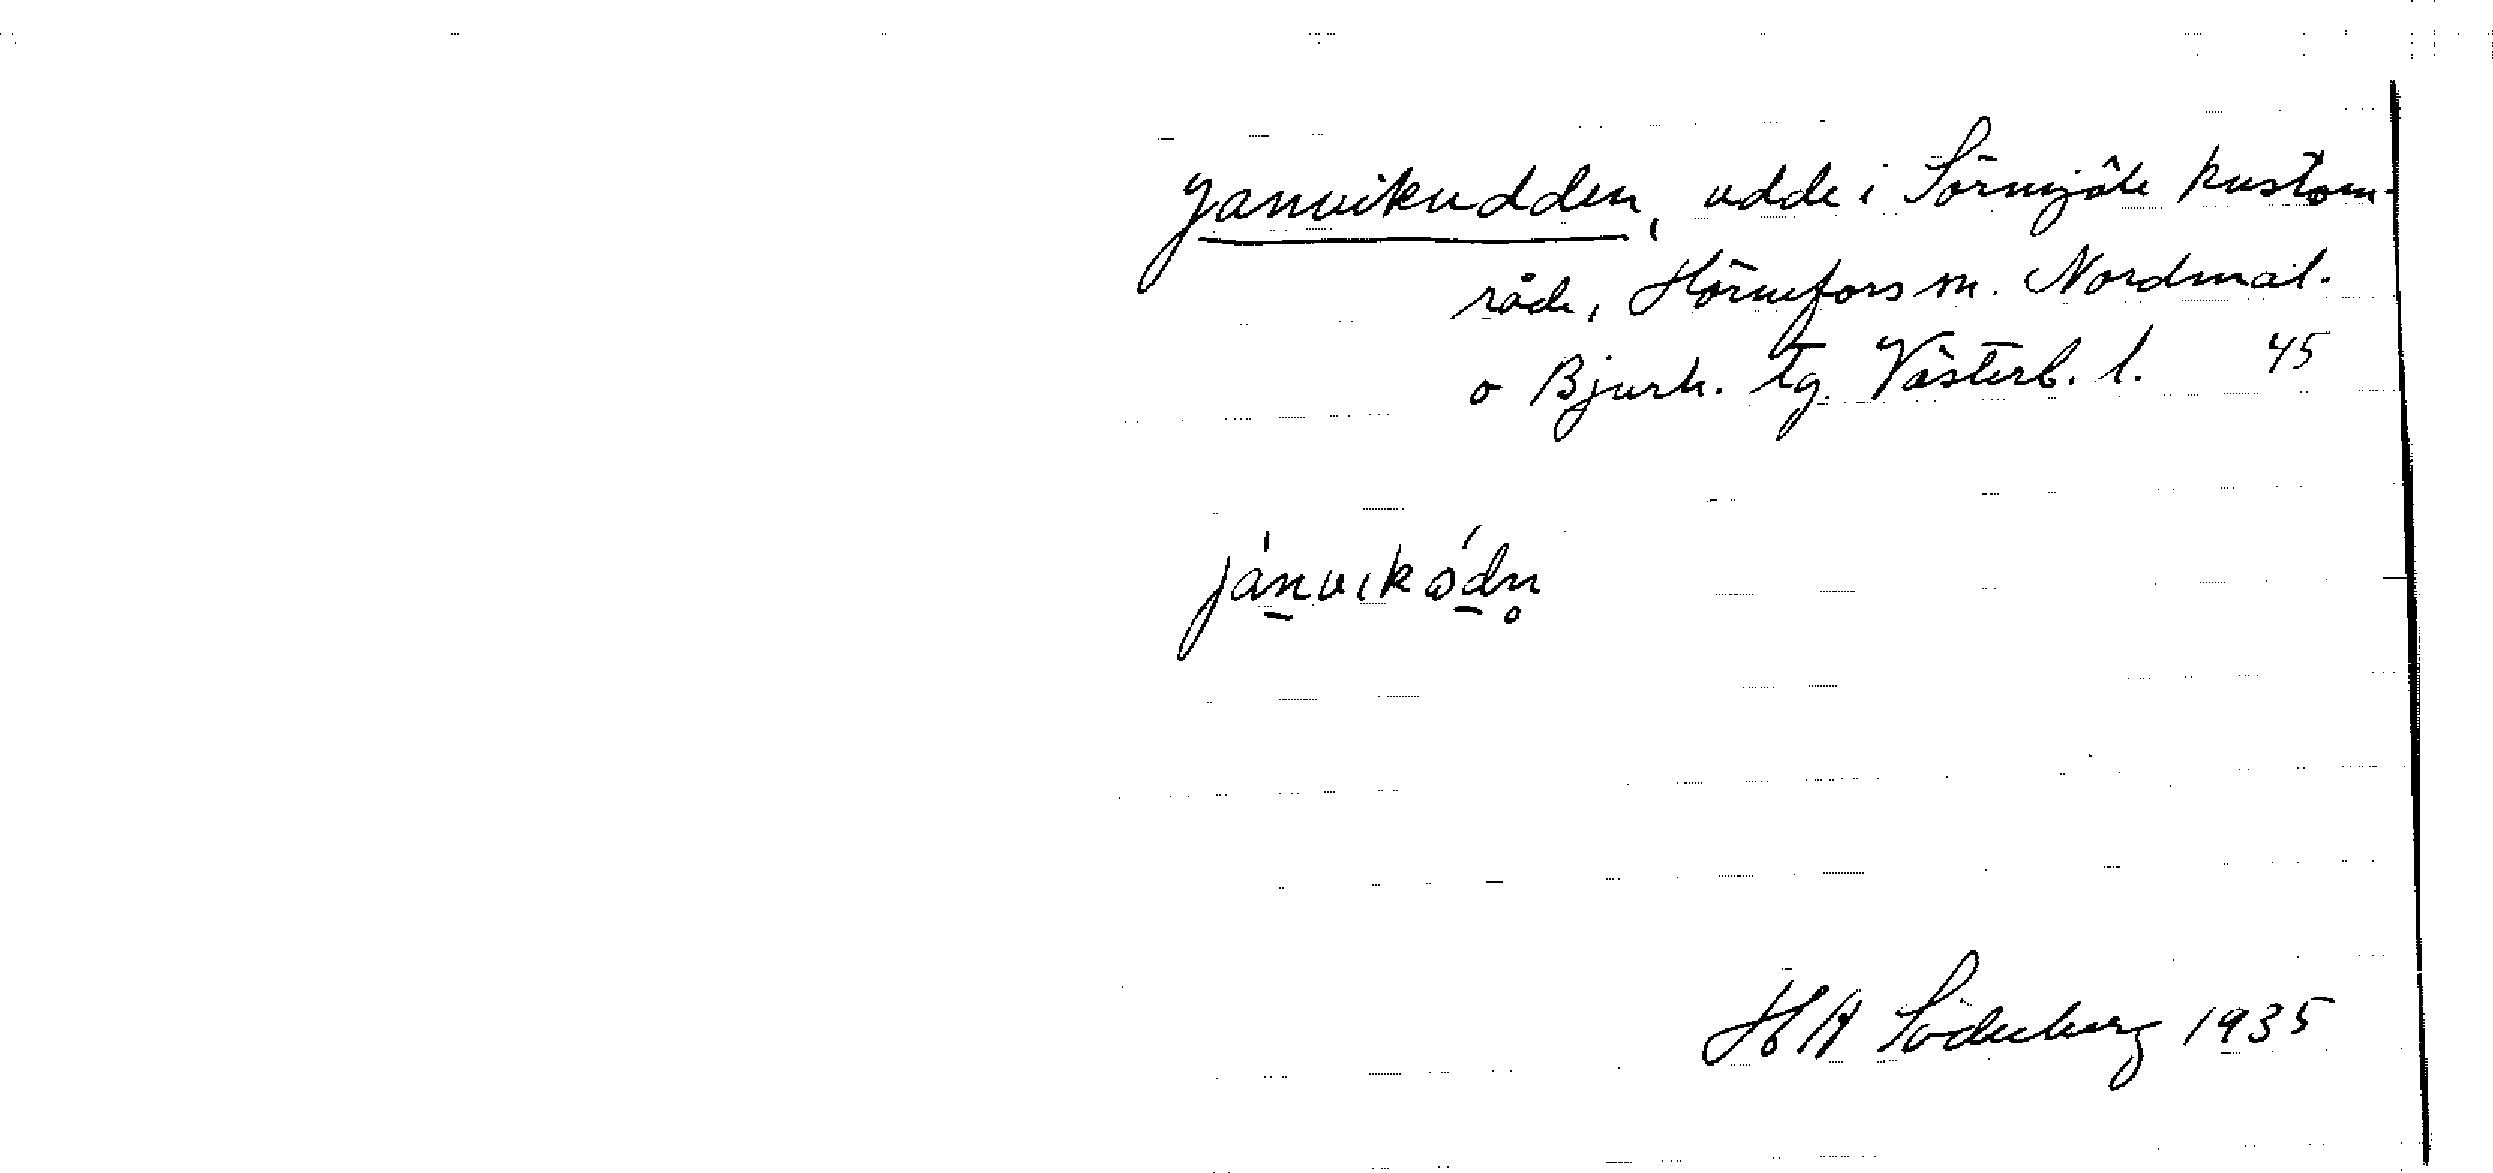 Janvikudden, udde i Sörmjöle kustom-
råde, Hörnefors sn. Nordmal.
o Bjurh. tg. Västerb. l. 45
ján̲vikωd̲n̥
H A Söderberg 1935